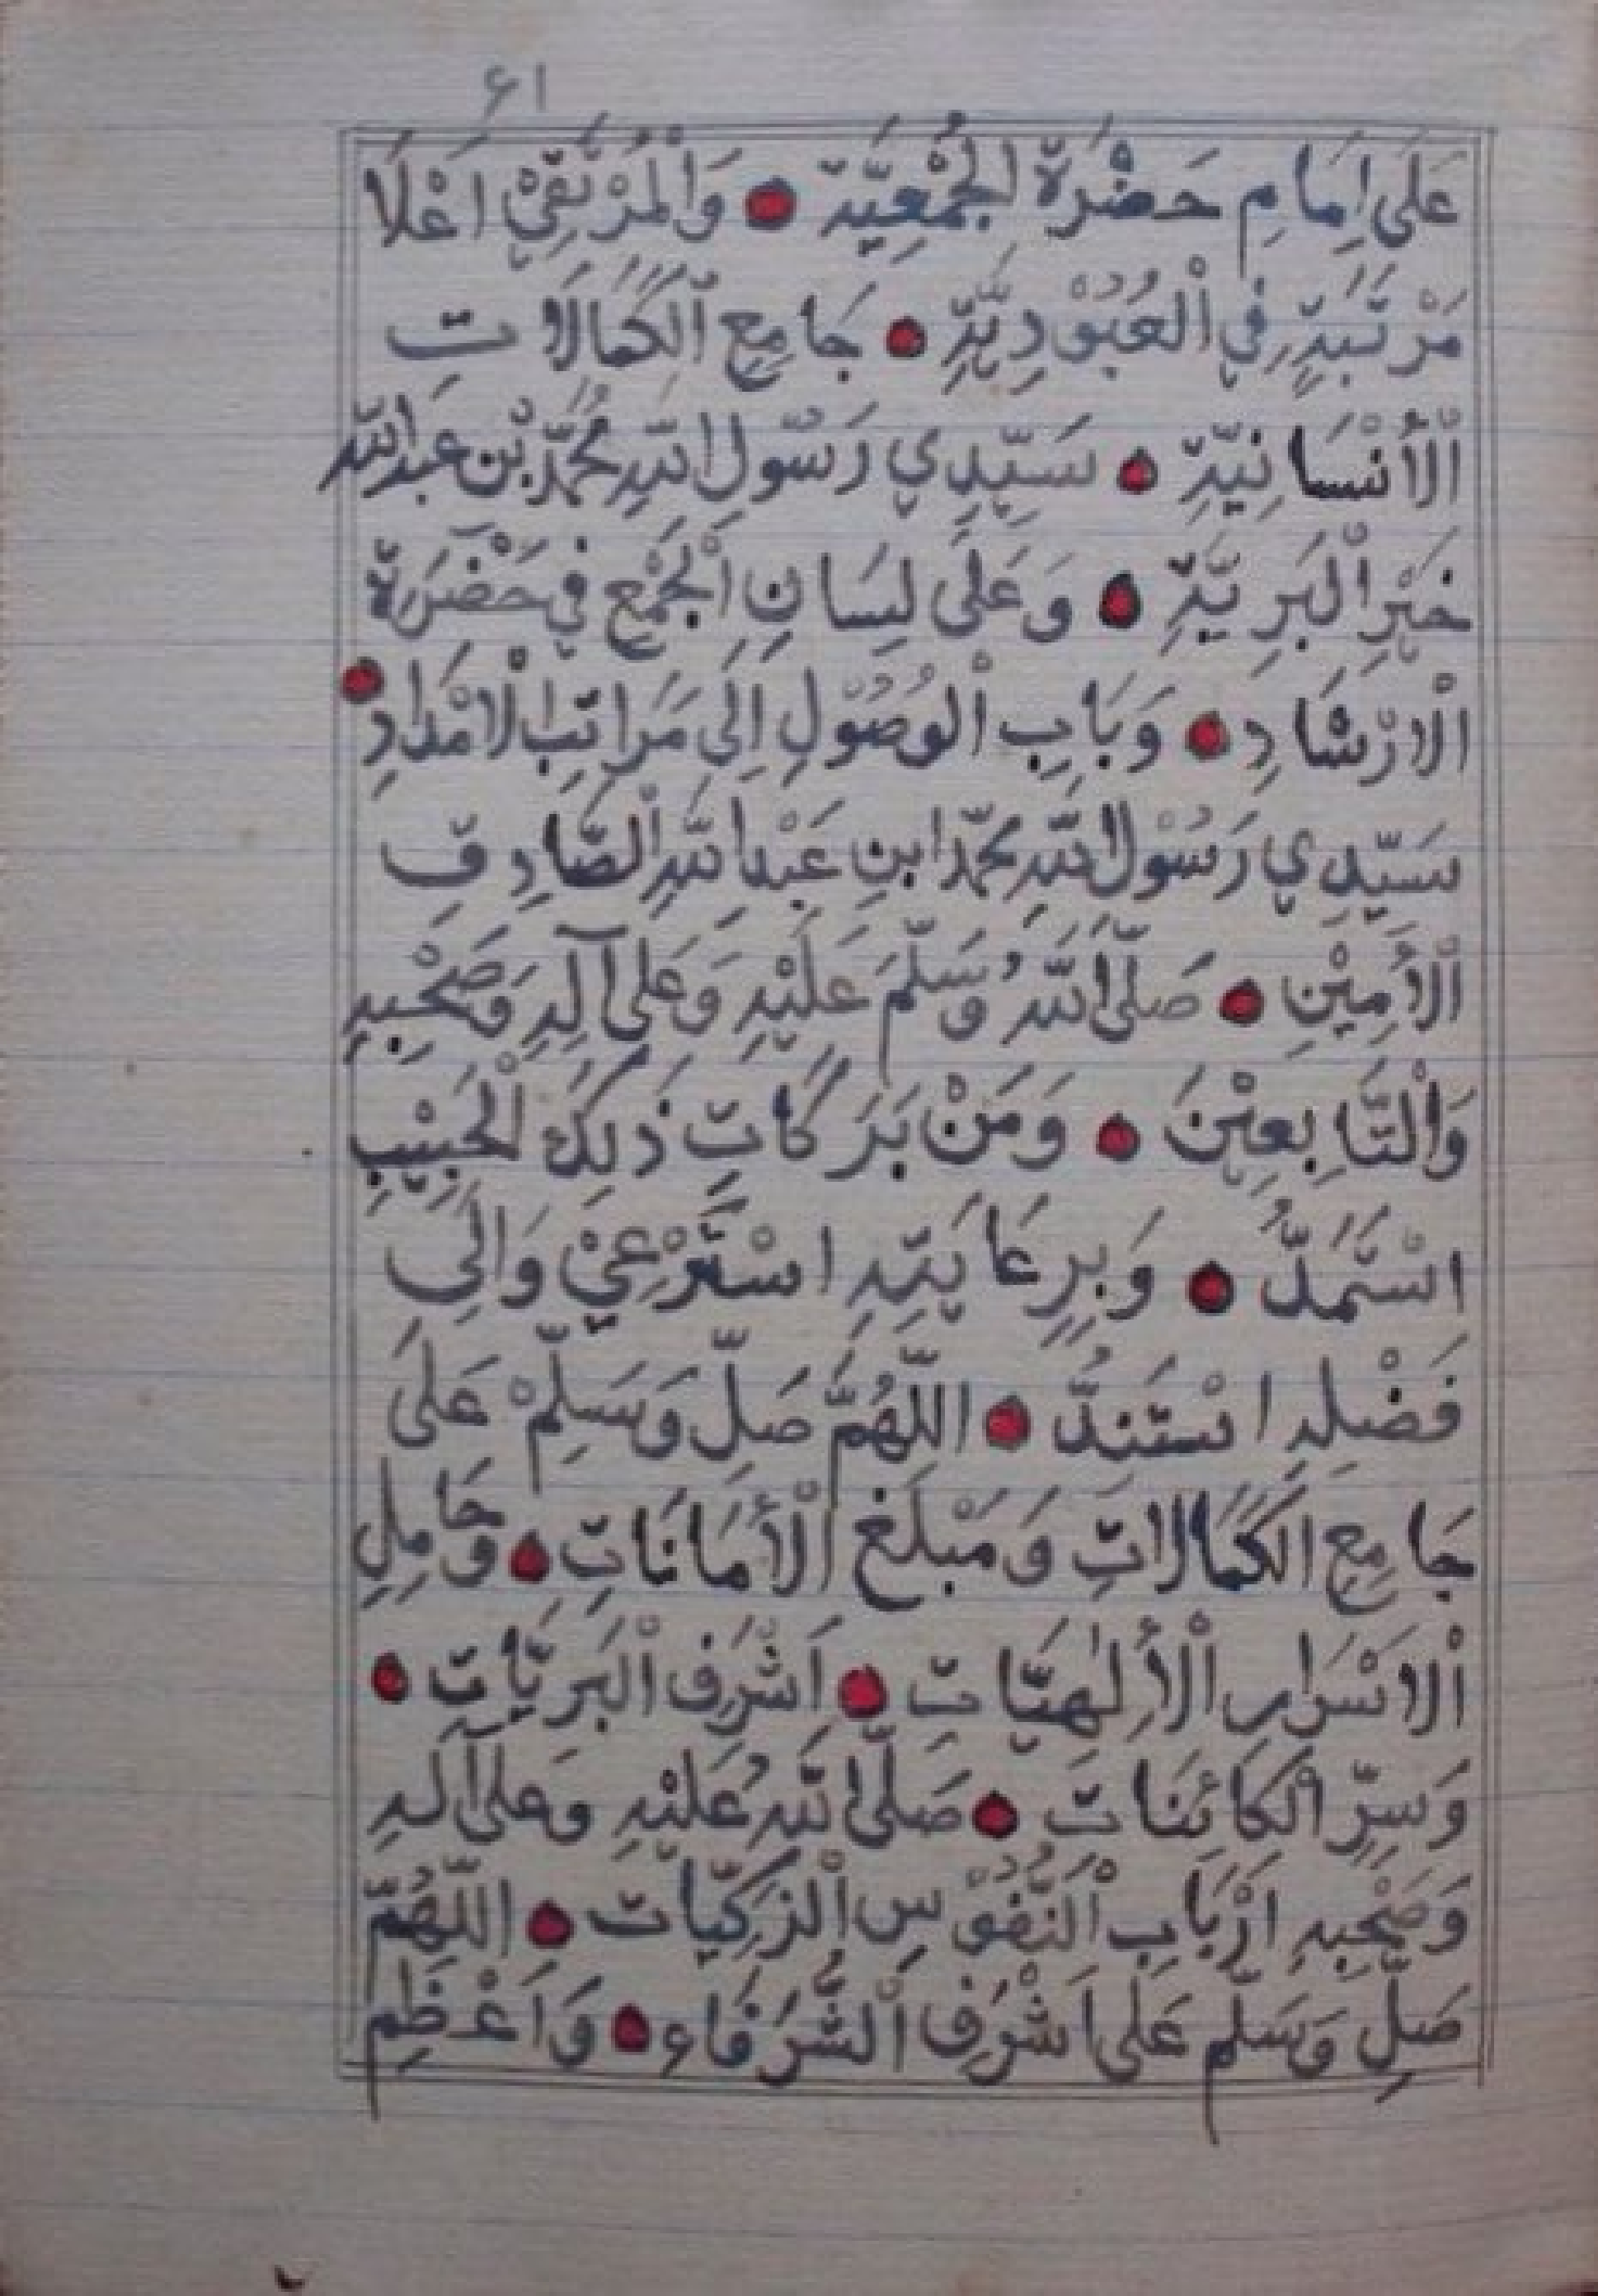 ٤١
عَلَى اِمَامِ حَضْرَةِ الجَمْعِيَّةِ • وَالْمُرْتَقِيْ اَعْلَا
مَرْتَبَةٍ فِي الْعُبُوْدِيَّةِ • جَامِعِ الْكَمَالَاتِ
الْأِنْسَانِيَّةِ • سَيِّدِي رَسُوْلِ اللّٰهِ مُحَمَّدْ بْنِ عَبدِ اللّٰه
خَيْرِ الْبَرِيَّةِ • وَعَلَى لِسَانِ الْجَمْعِ فِي حَضْرَةِ
الْاِرْشَادِ • وَبَابِ الْوُصُوْلِ اِلَى مَرَاتِبِ الْاِمْدَادِ •
سَيِّدِي رَسُوْلِ اللّٰهِ مُحَمَّدْ ابنِ عَبْدِ اللّٰهِ الْصَّادِقِ
الْأَمِيْنِ • صَلَّى اللّٰهُ وَسَلَّمَ عَلَيْهِ وَعَلَى آلِهِ وَصَحْبِهِ
وَالْتَّابِعِيْنَ • وَمَنْ بَرَكَاتِ ذَلِكَ الْحَبِيْبِ
اسْتَمَدُّ • وَبِرِعَايَتِهِ اسْتَرْعِيْ وَاِلَى
فَضْلِهِ اسْتَنِدُّ • اللّٰهُمَّ صَلِّ وَسَلِّمْ عَلَى
جَامِعِ الكَمَالَاتِ وَمَبْلَغِ الْأَمَانَاتِ • وَحَامِلِ
الْاَسْرَارِ الْأِلٰهِيَّاتِ • اَشْرَفِ الْبَرِيَّاتِ •
وَسِرِّ الْكَائِنَاتِ • صَلَّى اللّٰهُ عَلَيْهِ وعلى آلهِ
وَصَحْبِهِ اَرْبَابِ الْنُّفُوْسِ الْزَكِيَّات • اللّٰهُمَّ
صَلِّ وَسَلِّم عَلَى اَشْرَفِ الْشُّرَفَاءِ • وَاَعْظَمِ